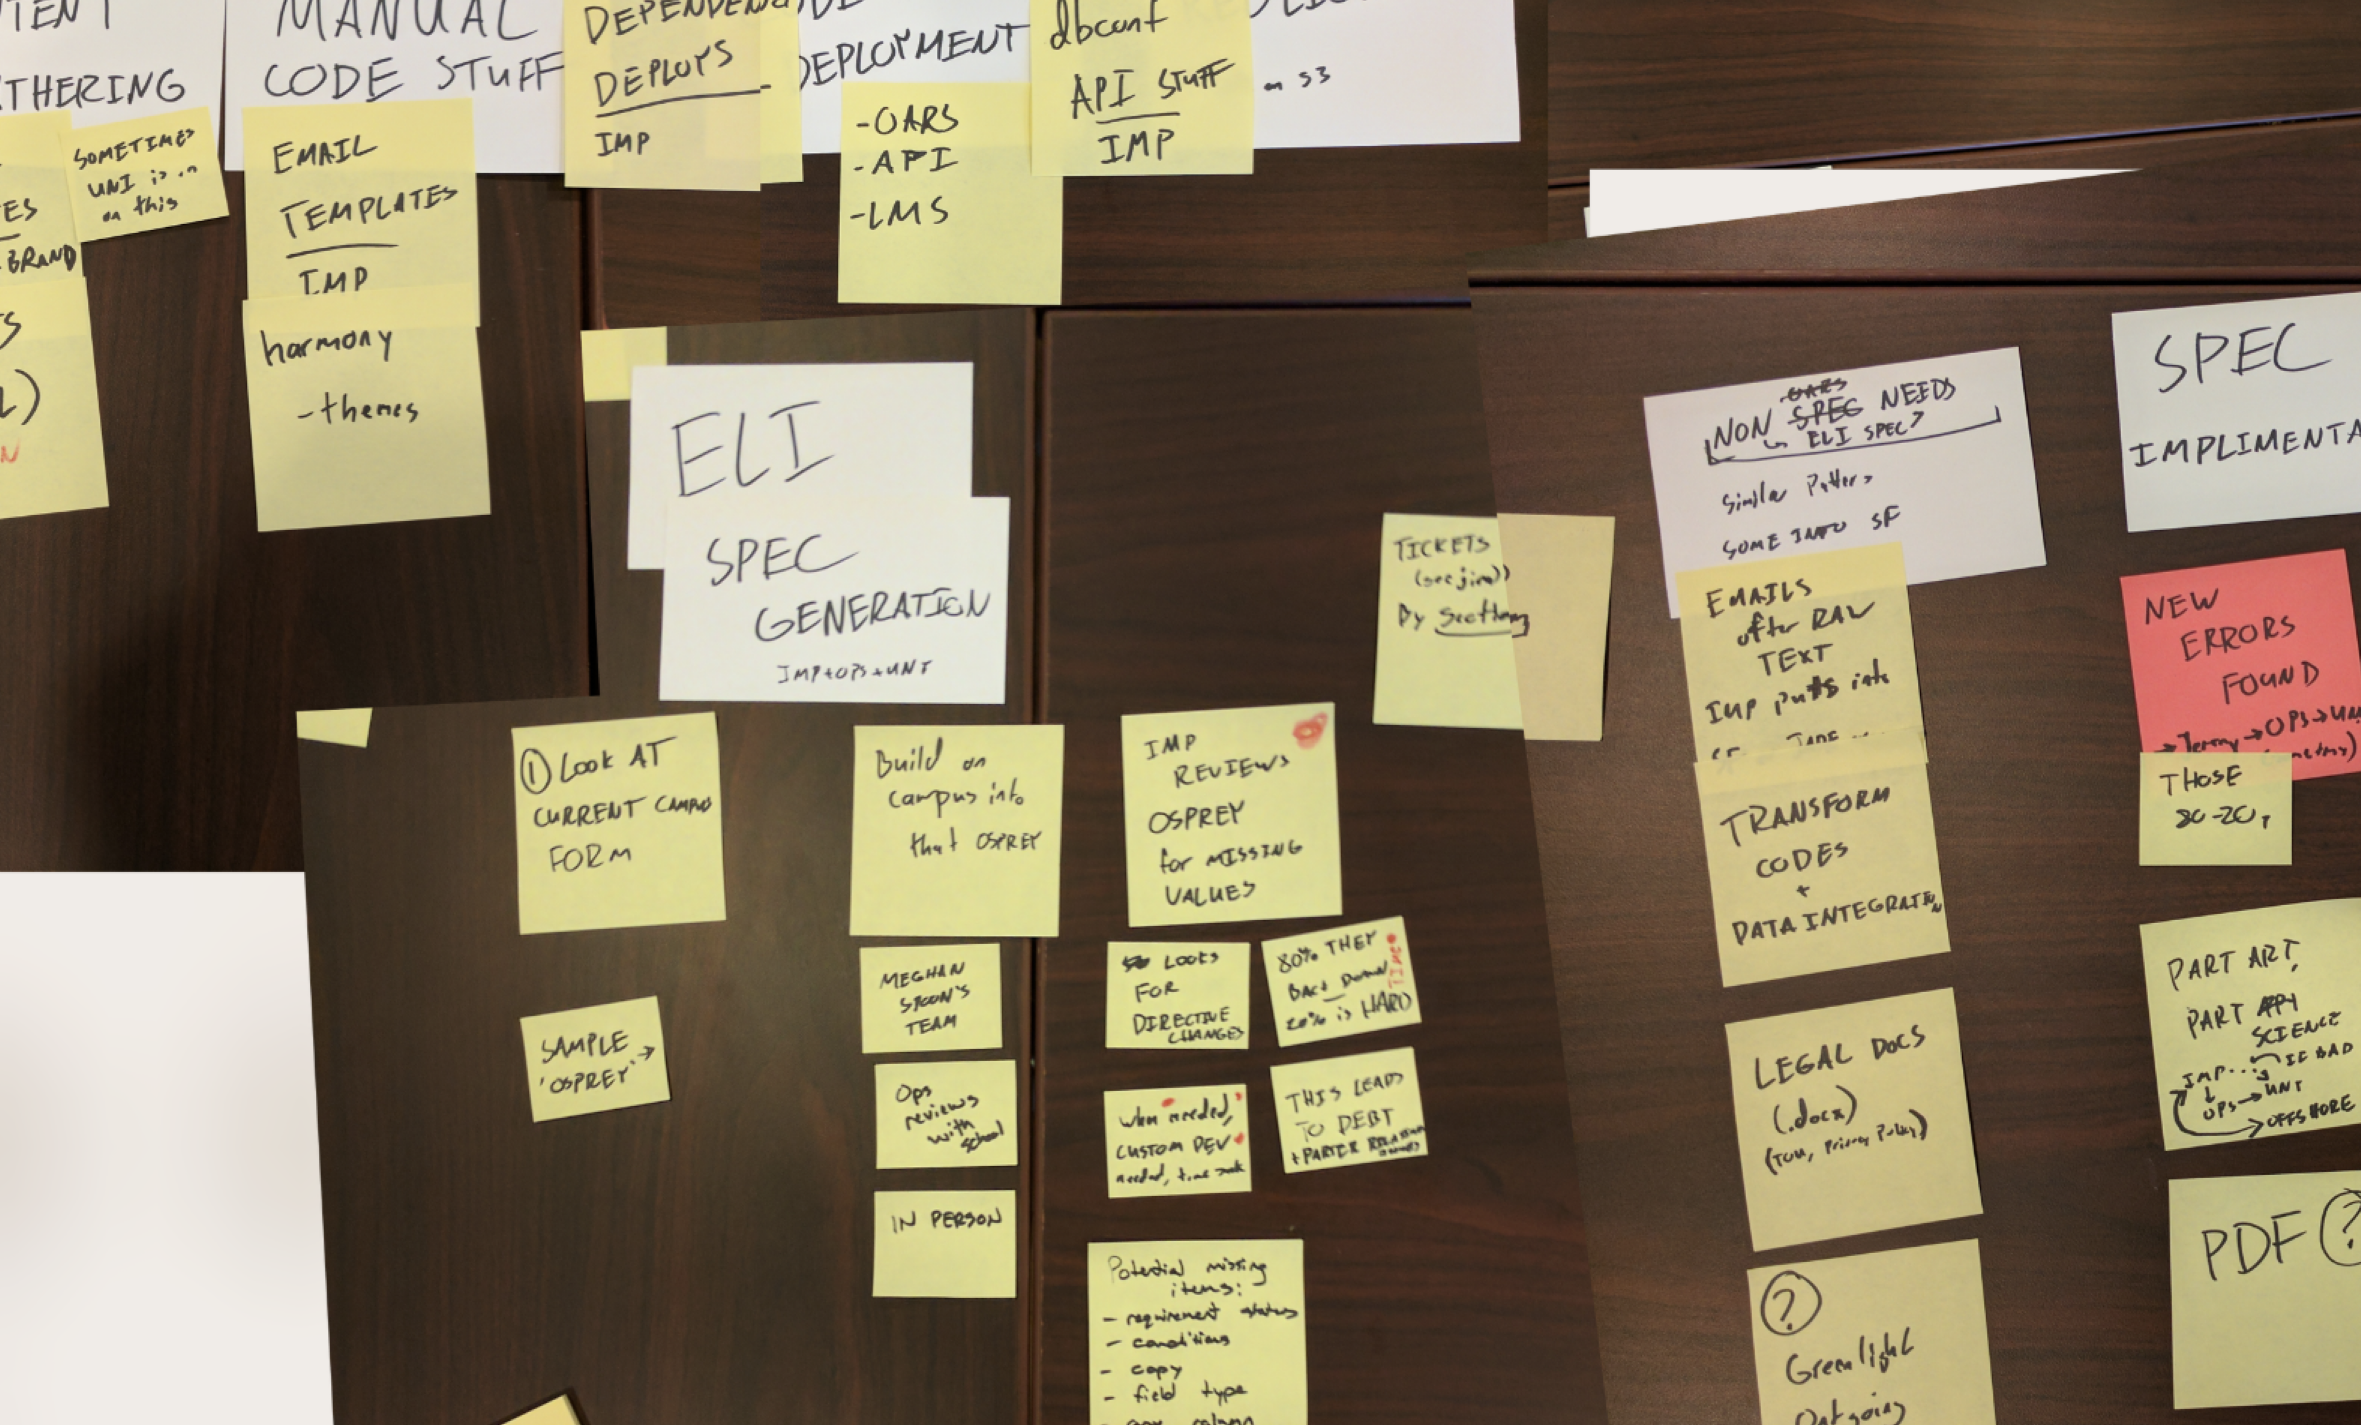 THERING
SOMETIMES
UNI is
on this
ES
BRAND
MANUAL
CODE STUFF
EMAIL
TEMPLATES
IMP
harmony
- themes
DEPLOYS
IMP
DEPLOYMENT
- OARS
- API
- LMS
dbconf
API STUFF
IMP
S3
ELI
SPEC
GENERATION
IMP+OPS+UNI
① LOOK AT
CURRENT CAMPUS
FORM
SAMPLE
'OSPREY' →
Build on
campus into
that OSPREY
MEGHAN
TEAM
Ops
reviews
with
school
IN PERSON
IMP
REVIEWS
OSPREY
for MISSING
VALUES
LOOKS
FOR
DIRECTIVE
CHANGES
80% THEY
BACK DOWN
20% is HARD
TIME
When needed,
CUSTOM DEV
needed, time suck
THIS LEADS
TO DEBT
Potential missing
items:
- requirement status
- conditions
- copy
- field type
TICKETS
(see jira))
By
NON OARS SPEC NEEDS
ELI SPEC?
Similar
SOME INTO SF
EMAILS
after RAW
TEXT
IMP puts into
TRANSFORM
CODES
+
DATA INTEGRATION
LEGAL DOCS
(.docx)
(TOU, Privacy Policy)
?
Greenlight
Outgoing
SPEC
IMPLIMENTA
NEW
ERRORS
FOUND
THOSE
80-20,
PART ART,
PART
SCIENCE
IMP... IF BAD
OPS → UNI
→ OFFSHORE
PDF ?